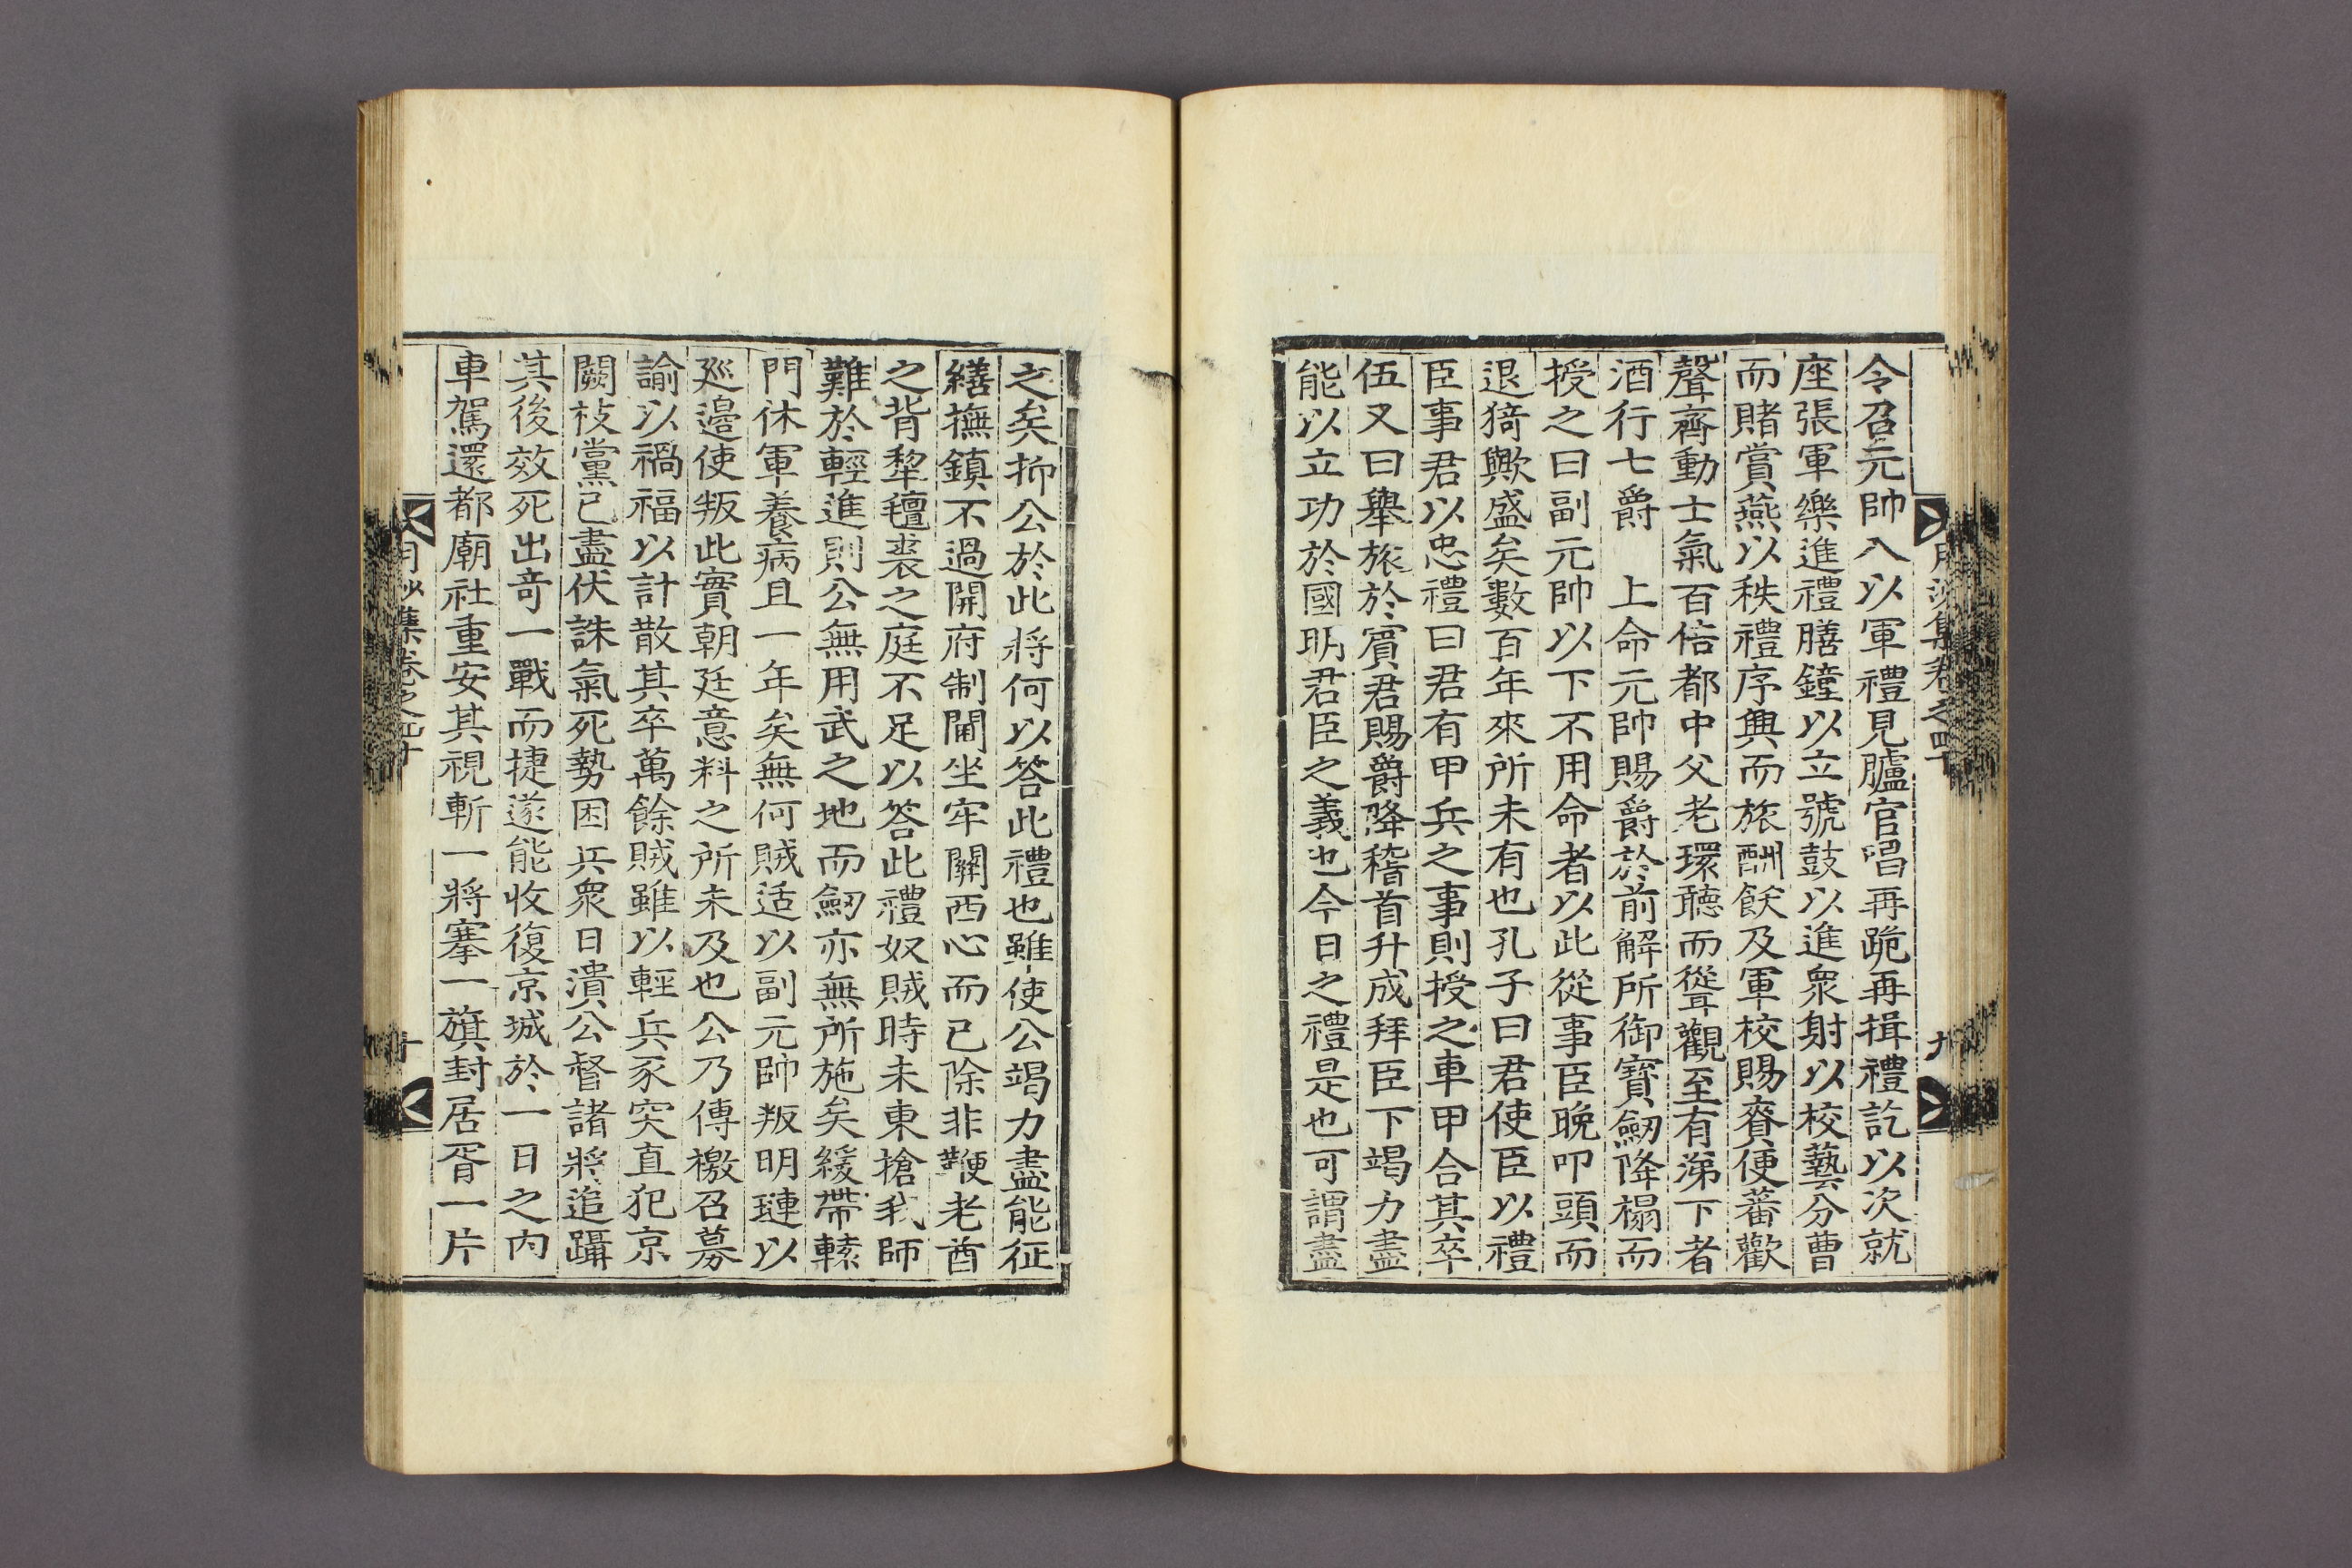 令召元帥入以軍禮見臚官唱再跪再揖禮訖以次就
座張軍樂進禮膳鐘以立號鼓以進衆射以校藝分曹
而賭賞燕以秩禮序興而旅酬飫及軍校賜賚便蕃歡
聲齊動士氣百倍都中父老環聽而聳觀至有涕下者
酒行七爵　上命元帥賜爵於前解所御寶劒降榻而
授之曰副元帥以下不用命者以此從事臣晩叩頭而
退猗歟盛矣數百年來所未有也孔子曰君使臣以禮
臣事君以忠禮曰君有甲兵之事則授之車甲合其卒
伍又曰舉旅於賓君賜爵降稽首升成拜臣下竭力盡
能以立功於國明君臣之義也今日之禮是也可謂盡
之矣抑公於此將何以答此禮也雖使公竭力盡能征
繕撫鎮不過開府制閫坐牢關西心而已除非鞭老酋
之背犂氊裘之庭不足以答此禮奴賊時未東搶我師
難於輕進則公無用武之地而劒亦無所施矣緩帶轅
門休軍養病且一年矣無何賊适以副元帥叛明璉以
廵邊使叛此實朝廷意料之所未及也公乃傳檄召募
諭以禍福以計散其卒萬餘賊雖以輕兵豕突直犯京
闕枝黨已盡伏誅氣死勢困兵衆日潰公督諸將追躡
其後效死出奇一戰而捷遂能收復京城於一日之內
車駕還都廟社重安其視斬一將搴一旗封居胥一片
月沙集卷之四十
九
月沙集卷之四十
十